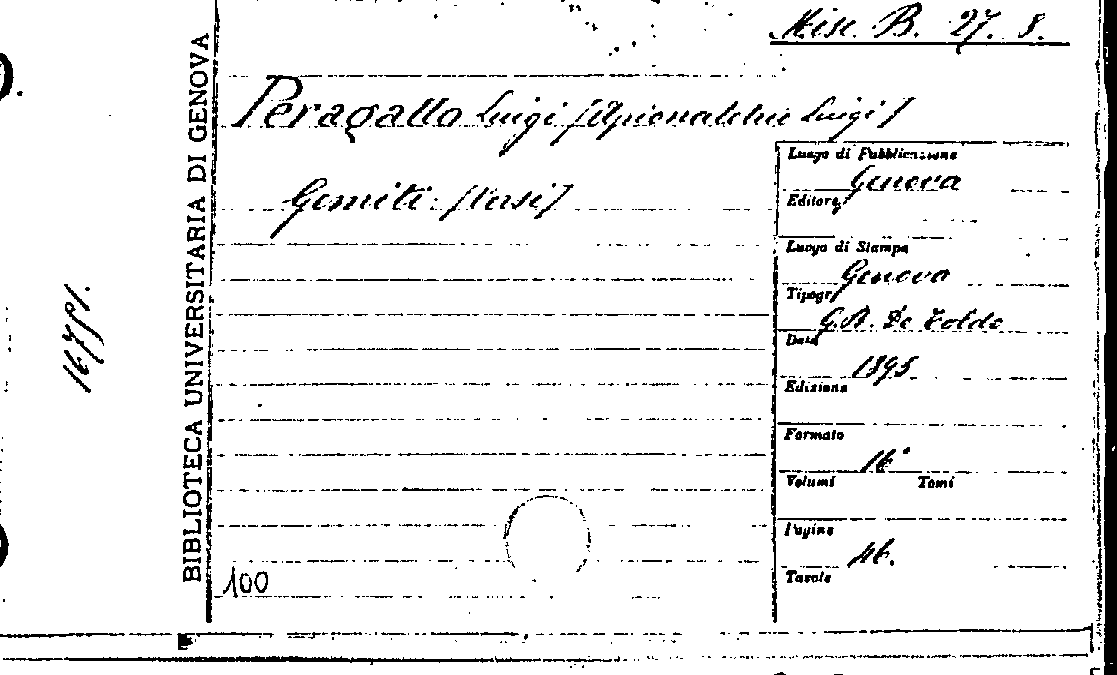 Misc. B. 27. 8.
BIBLIOTECA UNIVERSITARIA DI GENOVA
Peragallo Luigi [ Luigi]
Gemiti. [Versi]
Luogo di Pubblicazione
Genova
Editore
Luogo di Stampa
Genova
Tipogr.
G.B. De Toldo
Data
1895
Edizione
Formato
16°
Volumi Tomi
Pagine
46.
Tavole
100